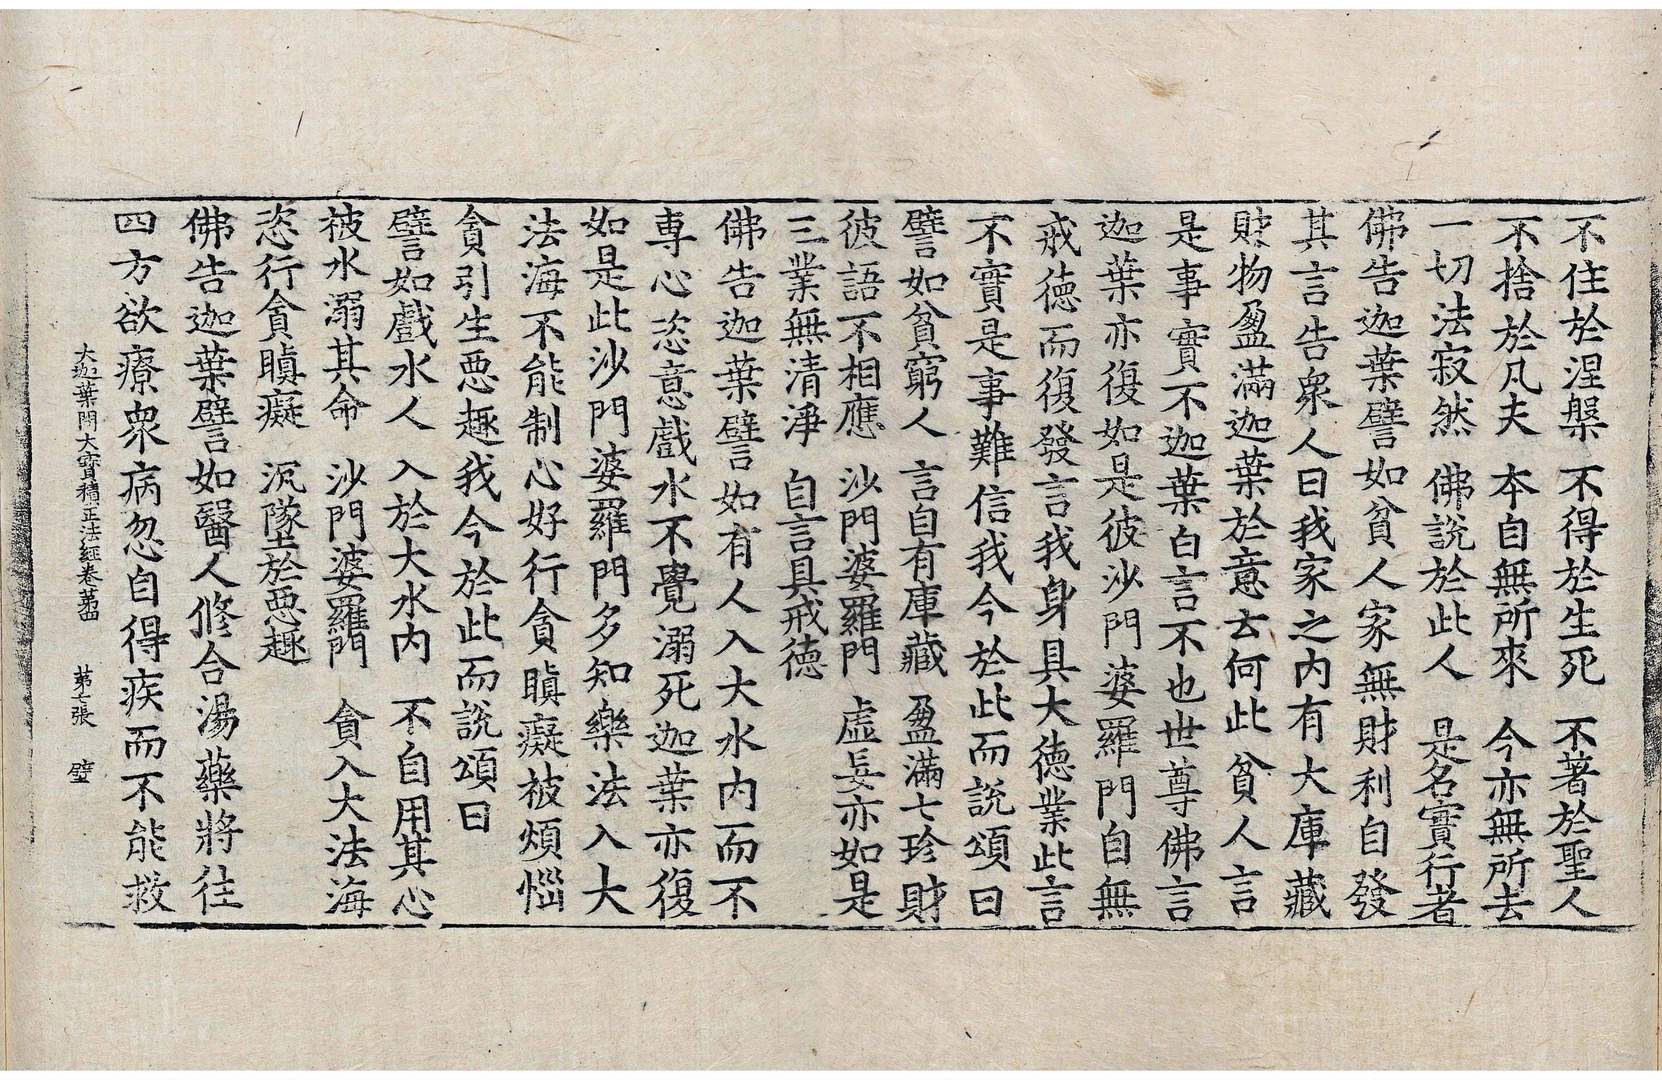 不住於涅槃　不得於生死　不著於聖人
不捨於凡夫　本自無所來　今亦無所去
一切法寂然　佛說於此人　是名實行者
佛告迦葉譬如貧人家無財利自發
其言告衆人曰我家之内有大庫藏
財物盈滿迦葉於意云何此貧人言
是事實不迦葉白言不也世尊佛言
迦葉亦復如是彼沙門婆羅門自無
戒德而復發言我身具大德業此言
不實是事難信我今於此而說頌曰
譬如貧窮人　言自有庫藏　盈滿七珍財
彼語不相應　沙門婆羅門　虛妄亦如是
三業無清淨　自言具戒德
佛告迦葉譬如有人入大水内而不
專心恣意戲水不覺溺死迦葉亦復
如是此沙門婆羅門多知樂法入大
法海不能制心好行貪瞋癡被煩惱
貪引生惡趣我今於此而說頌曰
譬如戲水人　入於大水内　不自用其心
被水溺其命　沙門婆羅門　貪入大法海
恣行貪瞋癡　沉墜於惡趣
佛告迦葉譬如醫人修合湯藥將往
四方欲療衆病忽自得疾而不能救
大迦葉問大寶積正法經卷第四　第七張　壁